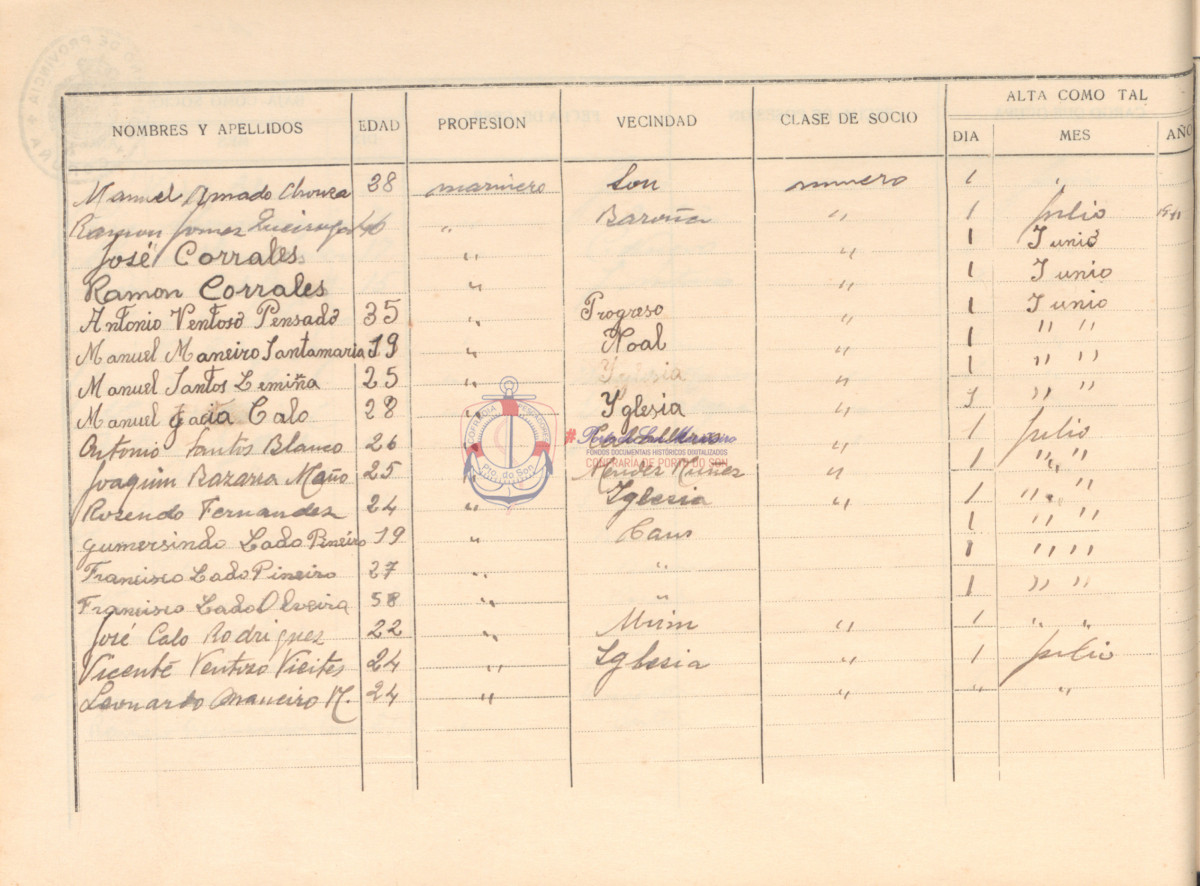 ALTA COMO TAL
NOMBRES Y APELLIDOS EDAD PROFESION VECINDAD CLASE DE SOCIO DIA MES AÑO
Manuel Amado Chouza 38 marinero Son numero 1 "
Ramon Gomez 46 " Baroña " 1 Julio
José Corrales " " 1 Junio
Ramon Corrales " " 1 Junio
Antonio Ventoso Pensado 35 " Progreso " 1 Junio
Manuel Maneiro Santamaria 19 " Noal " 1 " "
Manuel Santos Lemiña 25 " Yglesia " 1 " "
Manuel Gacia Calo 28 " Yglesia " 1 " "
Antonio Santos Blanco 26 " " 1 Julio
Joaquin Bazarra Maño 25 " Mendez Nuñez " 1 " "
Rozendo Fernandez 24 " Yglesia " 1 " "
Gumersindo Lado Pineiro 19 " Caus 1 " "
Francisco Lado Pineiro 27 " " 1 " "
Francisco Lado Olveira 58 " " 1 " "
José Calo Rodriguez 22 " " 1 " "
Vicente Ventoso Vieites 24 " Yglesia " 1 Julio
Leonardo Maneiro M. 24 " " " "
COFRADIA PESCADORES
Pto. do Son
FONDOS DOCUMENTAIS HISTÓRICOS DIGITALIZADOS
CONFRARÍA DE PORTO DO SON